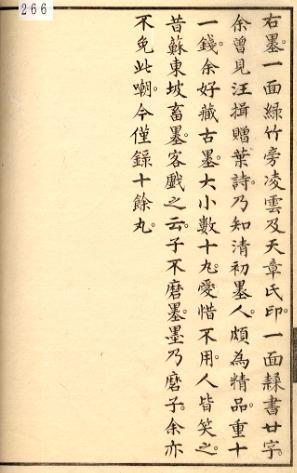 266
右墨。一面綠竹旁凌雲及天章氏印。一面隸書廿字。
余曾見汪揖贈葉詩。乃知清初墨人。頗為精品。重十
一錢。余好藏古墨。大小數十丸。愛惜不用。人皆笑之。
昔蘇東坡畜墨。客戲之云。子不磨墨。墨乃磨子。余亦
不免此嘲。今僅錄十餘丸。